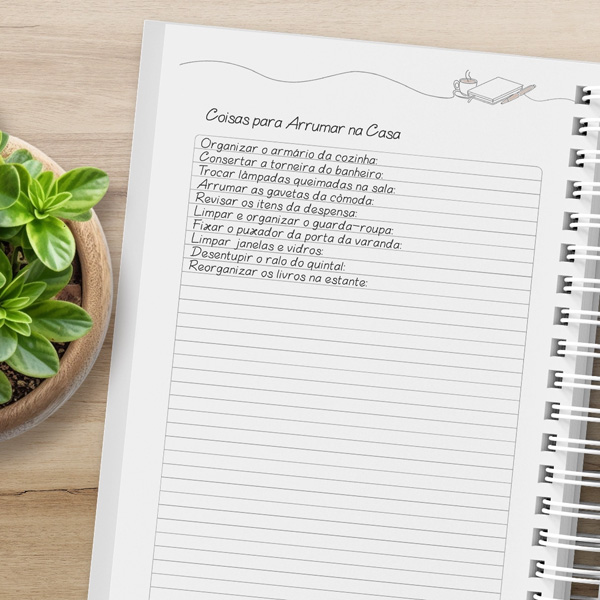 Coisas para Arrumar na Casa
Organizar o armário da cozinha:
Consertar a torneira do banheiro:
Trocar lâmpadas queimadas na sala:
Arrumar as gavetas da cômoda:
Revisar os itens da despensa:
Limpar e organizar o guarda-roupa:
Fixar o puxador da porta da varanda:
Limpar janelas e vidros:
Desentupir o ralo do quintal:
Reorganizar os livros na estante: